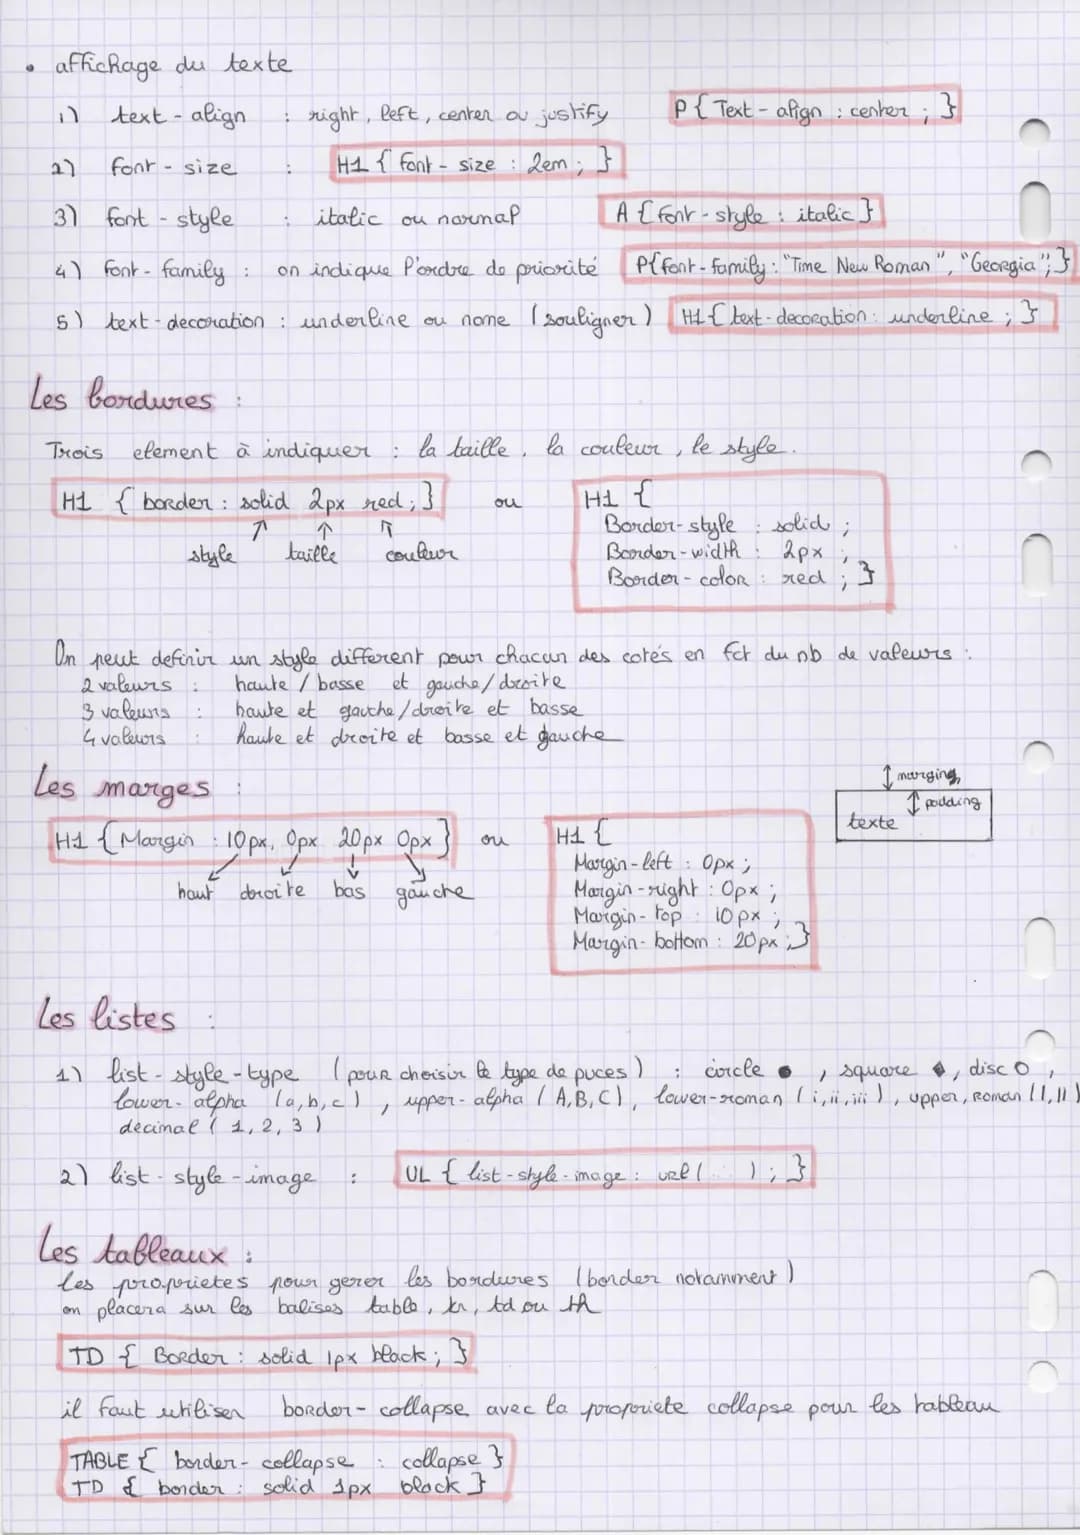 • affichage du texte
1) text-align : right, left, center ou justify P { Text-align : center ; }
2) font-size : H1 { font-size : 2em ; }
3) font-style : italic ou normal A { font-style : italic }
4) font-family : on indique l'ordre de priorité P{font-family : "Time New Roman", "Georgia"; }
5) text-decoration : underline ou none (souligner) H1 { text-decoration : underline ; }
Les bordures :
Trois element à indiquer : la taille, la couleur, le style.
H1 { border : solid 2px red; } ou H1 {
Border-style : solid ;
style taille couleur Boorder-width : 2px ;
Boorder-color : red ; }
On peut definir un style different pour chacun des cotés en fct du nb de valeurs :
2 valeurs : haute / basse et gauche/droite
3 valeurs : haute et gauche/droite et basse
4 valeurs : haute et droite et basse et gauche
Les marges :
marging
padding
texte
H1 { Margin : 10px, 0px 20px 0px } ou H1 {
Margin-left : 0px ;
haut droite bas gauche Margin-right : 0px ;
Margin-top : 10px ;
Margin-bottom : 20px ; }
Les listes :
1) list-style-type (pour choisir le type de puces) : circle ●, square ◆, disc O,
lower-alpha (a,b,c), upper-alpha (A,B,C), lower-roman (i,ii,iii), upper,roman (I,II)
decimal (1,2,3)
2) list-style-image : UL { list-style-image : url( ... ) ; }
Les tableaux :
les proprietes pour gerer les bordures (border notamment)
on placera sur les balises table, tr, td ou th
TD { Border : solid 1px black ; }
il faut utiliser border-collapse avec la propriete collapse pour les tableau
TABLE { border-collapse : collapse }
TD { border : solid 1px black }